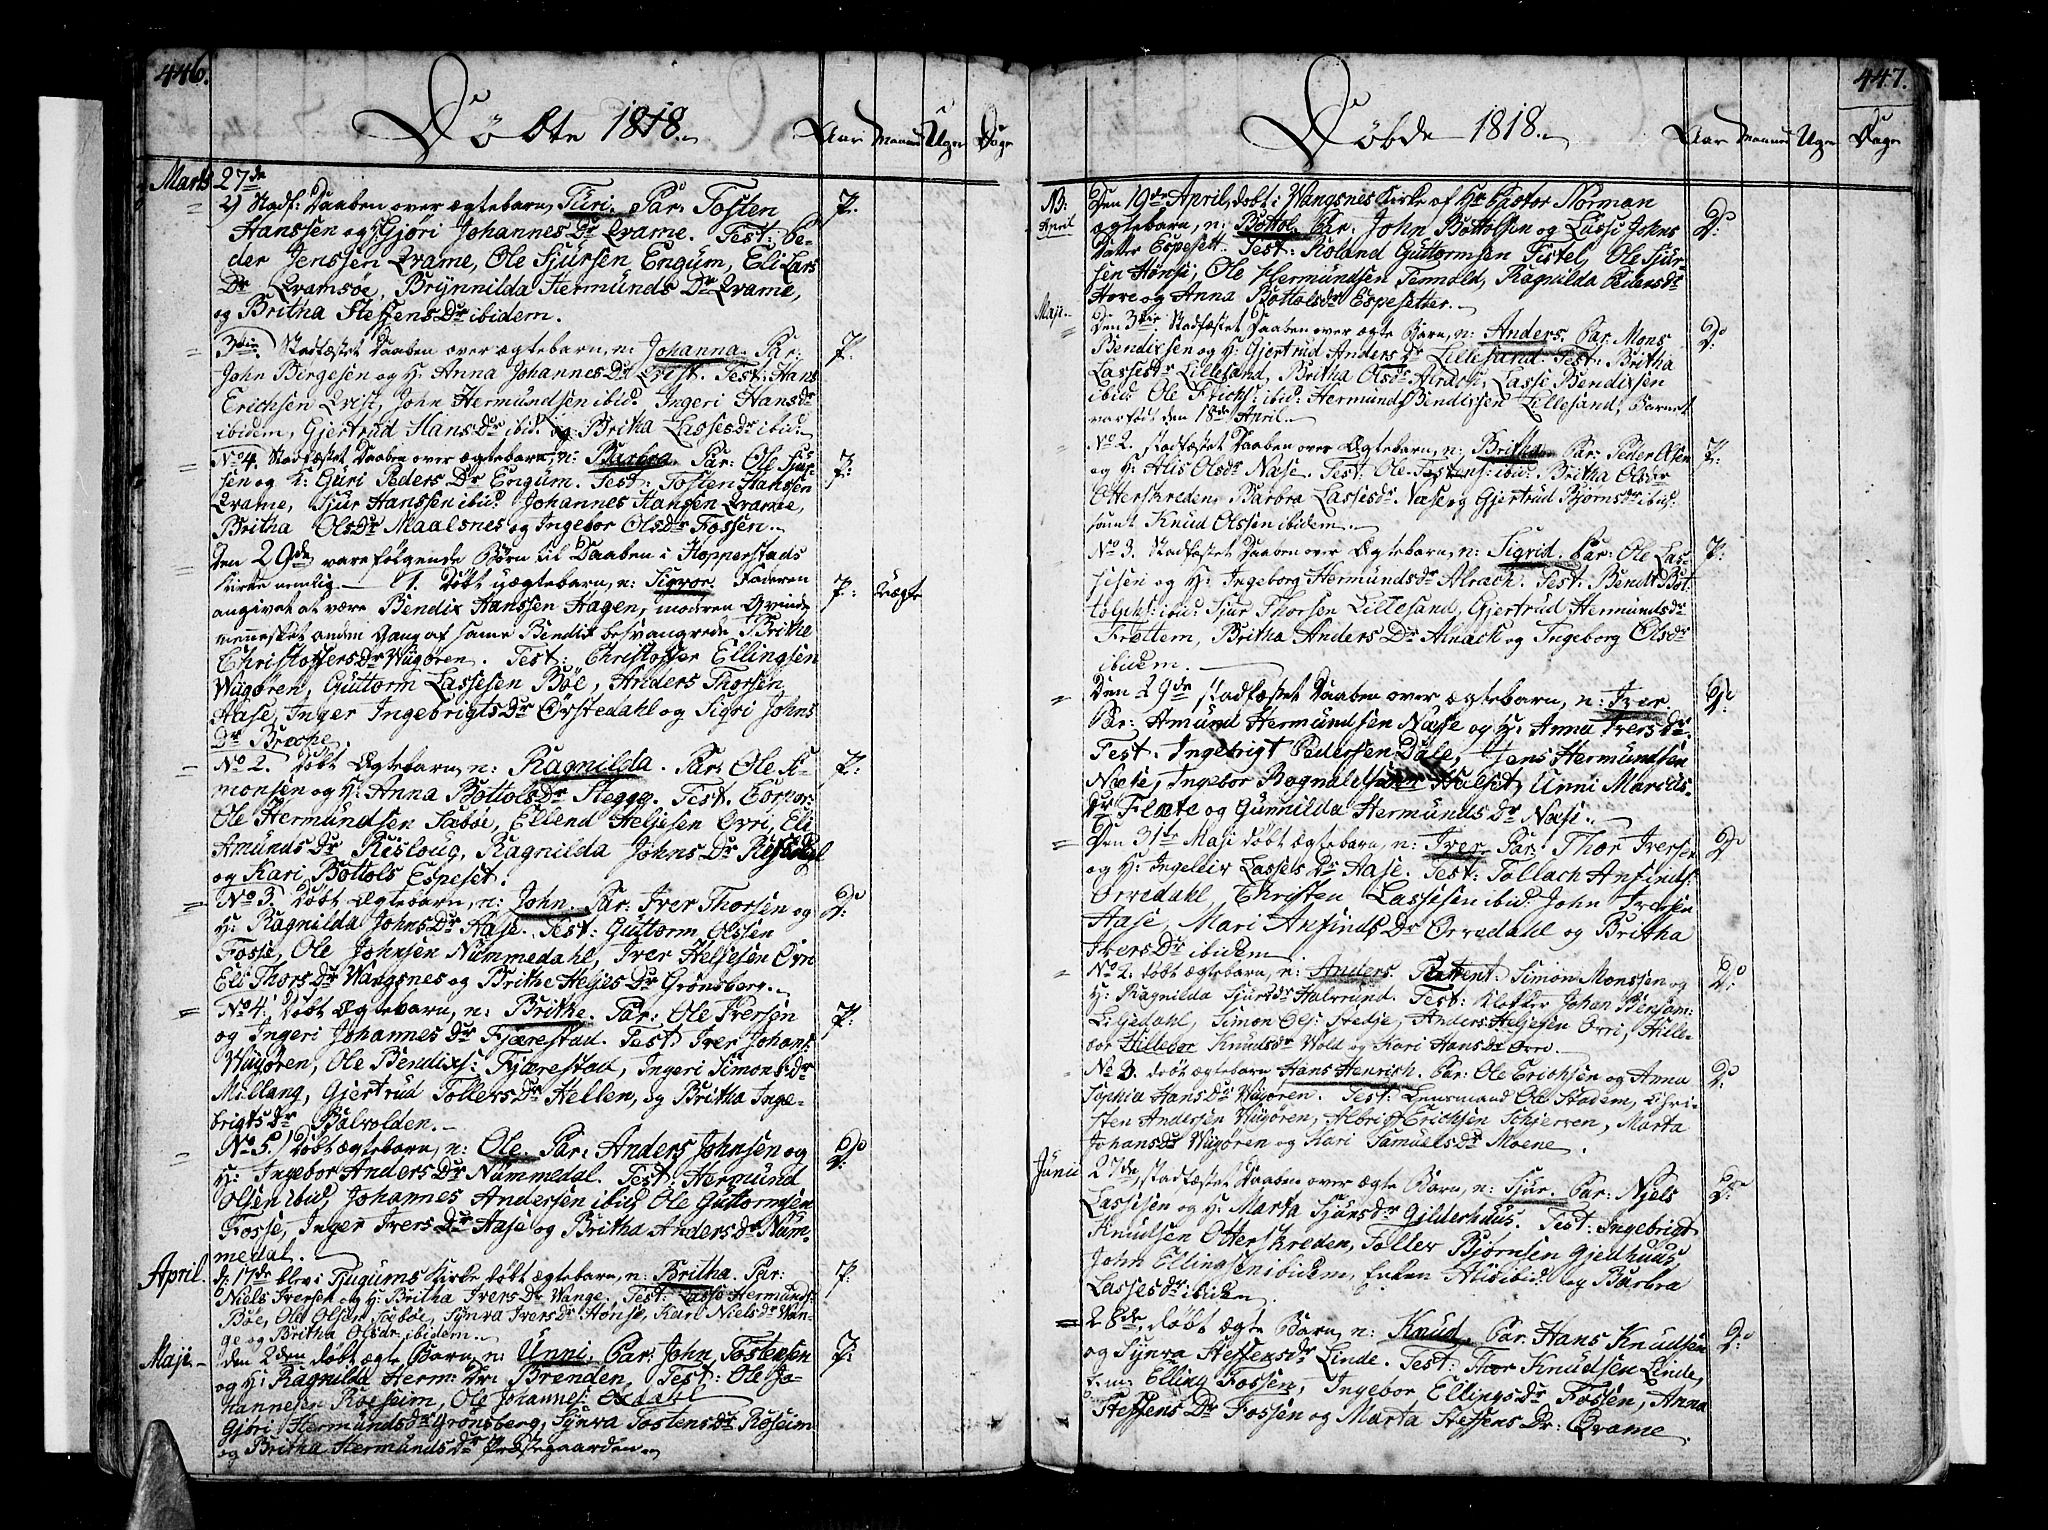 446.
Döbte 1818.
Aar Maaned Uger Dage
Marts 27de
2) Stadf: Daaben over ægtebarn, Turi. Par: Tosten
Hanssen og H: Gjöri Johannes Dr Qvame. Test: Pe-
der Jenssen Qvame, Ole Sjursen Engum, Eli Lars
Dr Qvamsöe, Brÿnnilda Hermunds Dr Qvame,
og Britha Steffens Dr ibidem.
Stadfæstet Daaben over ægtebarn, n: Johanna. Par:
John Birgesen og H: Anna Johannes Dr Qvist. Test: Hans
Erichsen Qvist, John Hermundsen ibid: Ingeri Hansdr
ibidem, Gjertrud Hans dr ibid: og Britha Lasses dr ibid:
No 4. Stadfæstet Daaben over ægtebarn, n: Barbra Par: Ole Sjur-
sen og H: Guri Peders Dr Engum. Test: Tosten Hanssen
Qvame, Sjur Hanssen ibid: Johannes Hansen Qvame,
Britha Olsdr Maalsnes og Ingebor Olsdr Fossen.
Den 29de vare fölgende Börn til Daaben i Hopperstads
Kirke nemlig 1. Döbt uægtebarn, n: Sigvor. Faderen
angivet at være Bendix Hanssen Hagen, moderen Qvinde
mennesket anden Gang af samme Bendix besvangrede Britha
Christoffers Dr Wiigören. Test: Christoffer Ellingsen
Wiigören, Guttorm Lassesen Böe, Anders Thorsen
Aase, Inger Ingebrigts Dr Örstedahl og Sigri Johns
Dr
Uægte
No 2. Döbt Ægtebarn, n: Ragnilda. Par: Ole Si-
monsen og H: Anna Bottols Dr Stegge. Test:
Ole Hermundsen Sæböe, Ellend Heljesen Orri, Eli
Amunds Dr Risloug, Ragnilda Johns Dr
og Kari Bottols Espeset.
No 3. Döbt Ægtebarn, n: John. Par: Iver Thorsen og
H: Ragnilda Johns Dr Aase. Test: Guttorm Olssen
Fosse, Ole Johnsen Nummedahl, Iver Heljesen Orri
Eli Thors Dr Wangsnes og Brithe Heljes Dr Grönsberg.
No 4. Döbt Ægtebarn, n: Brithe. Par: Ole Iversen
og Ingeri Johannes Dr Fjærestad. Test: Iver Johans:
Wiigören, Ole Bendixs: Fjærestad, Ingeri Simons dr
Millang, Gjertrud Tollefs Dr Hellen, og Britha Inge-
brigts dr Balvolden.
No 5. Döbt ægtebarn, n: Ole. Par: Anders Johnsen og
H: Ingebor Anders Dr Nummedal. Test: Hermund
Olsen ibid, Johannes Andersen ibid, Ole Guttormsen
Fosse, Inger Ivers Dr Aase og Britha Anders dr Num-
medal.
April. d: 17de blev i Tugums Kirke döbt ægtebarn, n: Britha. Par:
Niels Iversen og H: Britha Ivers Dr Wange. Test: Lasse Hermunds:
Böe, Ole Olsen Sæböe, Synva Ivers Dr Hönse, Kari Niels Dr Wan-
ge og Britha Olsdr ibidem.
Maji. den 2den döbt ægte Barn, n: Unni. Par: John Tostensen
og H: Ragnilda Herm: Dr: Brenden, Test: Ole Jo-
hannesen Roeseim, Ole Johannes:
Gjöri Hermunds dr Grönsberg, Synva Tostens dr Roseim
og Britha Hermunds dr Præstegaarden.
447.
Döbde 1818.
Aar Maaned Uger Dage
NB: Den 19de April, döbt i Wangsnes Kirke af Hr Pastor Norman
April ægtebarn, n: Bottol. Par: John Bottolsen og Lussi Johns
Datter Espesett. Test: Roland Guttormsen Tistel, Ole Sjur-
sen Hönsi, Ole Hermundsen Tennold, Ragnilda Pedersdr
Hove og Anna Bottolsdr Espesetter.
Maji. Den 3die Stadfæstet Daaben over ægte Barn, n: Anders. Par: Mons
Bendixsen og H: Gjertrud Anders Dr Lillesand. Test: Britha
Lasses dr Lillesand, Britha Olsdr Alrach, Lasse Bendixsen
ibid: Ole Erichs: ibid: Hermund Bendixsen Lillesand, Barnet
var födt den 18de April.
No 2. Stadfæstet Daaben over Ægtebarn, n: Britha. Par: Peder Olsen
og H: Alis Olsdr Næse. Test: Ole Tostens: ibid: Britha Olsdr
Otterskreden, Barbra Lassesdr Næse og Gjertrud Björnsdr ibid:
samt Knud Olssen ibidem.
No 3. Stadfæstet Daaben over Ægtebarn, n: Sigrid. Par: Ole Las-
sesen og H: Ingeborg Hermundsdr Alrach. Test: Bendt Bot-
tolphs: ibid: Sjur Thorsen Lillesand, Gjertrud Hermunds dr
Frettem, Britha Anders Dr Alrach og Ingeborg Olsdr
ibidem.
Den 29de stadfæstet Daaben over ægtebarn, n: Iver.
Par: Amund Hermundsen Næse og H: Anna Ivers Dr.
Test: Ingebrigt Pedersen Dale, Jens Hermundsen
Næse, Ingebor Halset, Unni
Dr Flæte og Gunnilda Hermunds Dr Næsi.
Den 31te Maji döbt ægtebarn, n: Iver. Par: Thor Iversen
og H: Ingeleiv Lasses Dr Aase. Test: Tollach Anfinds:
Orvedahl, Christen Lassesen ibid: John Iversen
Aase, Mari Anfinds Dr Orvedahl og Britha
Ivers Dr ibidem.
No 2. döbt ægtebarn, n: Anders. Par: Simon Monssen og
H: Ragnilda Sjurs dr Halsrund. Test: Klokker Johan
Liljedahl, Simon Ols: Stedje, Anders Heljesen Orri, Hille-
bor Hillebor Knudsdr Wold og Kari Hansdr Orri.
No 3. döbt ægtebarn Hans Henrich. Par: Ole Erichsen og Anna
Sophia Hansdr Wiigören. Test: Lensmand Ole Stadem, Chri-
sten Andersen Wiigören, Albrigt Erichsen Schjerven, Marta
Johansdr Wiigören og Kari Samuelsdr Moene.
Junii 27de, stadfæstet Daaben over ægte Barn, n: Sjur. Par: Niels
Lassesen og H: Marta Sjurs dr Gilderhuus. Test: Ingebrigt
Knudsen Otterskreden, Tollev Björnsen Gjelhuus,
John Ellingsen ibidem, Enken ibid: og Barbra
Lassesdr ibidem.
28de, döbt ægte Barn, n: Knud, Par: Hans Knudsen
og Synva Steffens dr Linde. Test: Thor Knudsen Linde,
Elling Fossen, Ingebor Ellings dr Fossen, Anna
Steffens Dr Fossen og Marta Steffens Dr: Qvame.